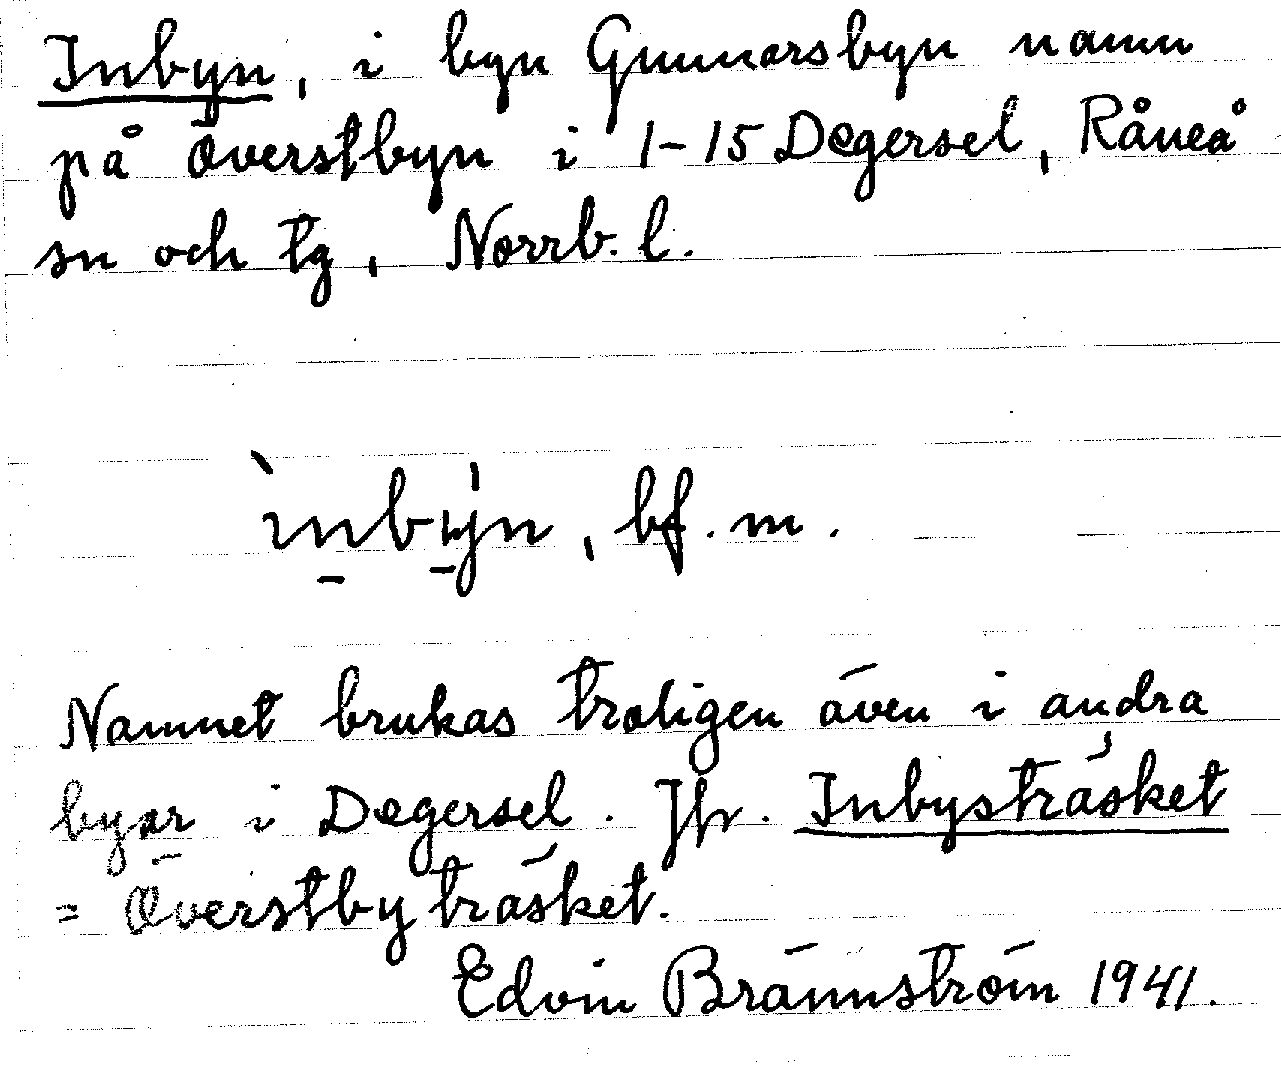 Inbyn, i byn Gunnarsbyn namn
på Överstbyn i 1-15 Degersel, Råneå
sn och tg, Norrb. l.
ìnby̍n, bf. m.
Namnet brukas troligen även i andra
byar i Degersel. Jfr. Inbyträsket
= Överstbyträsket.
Edvin Brännström 1941.